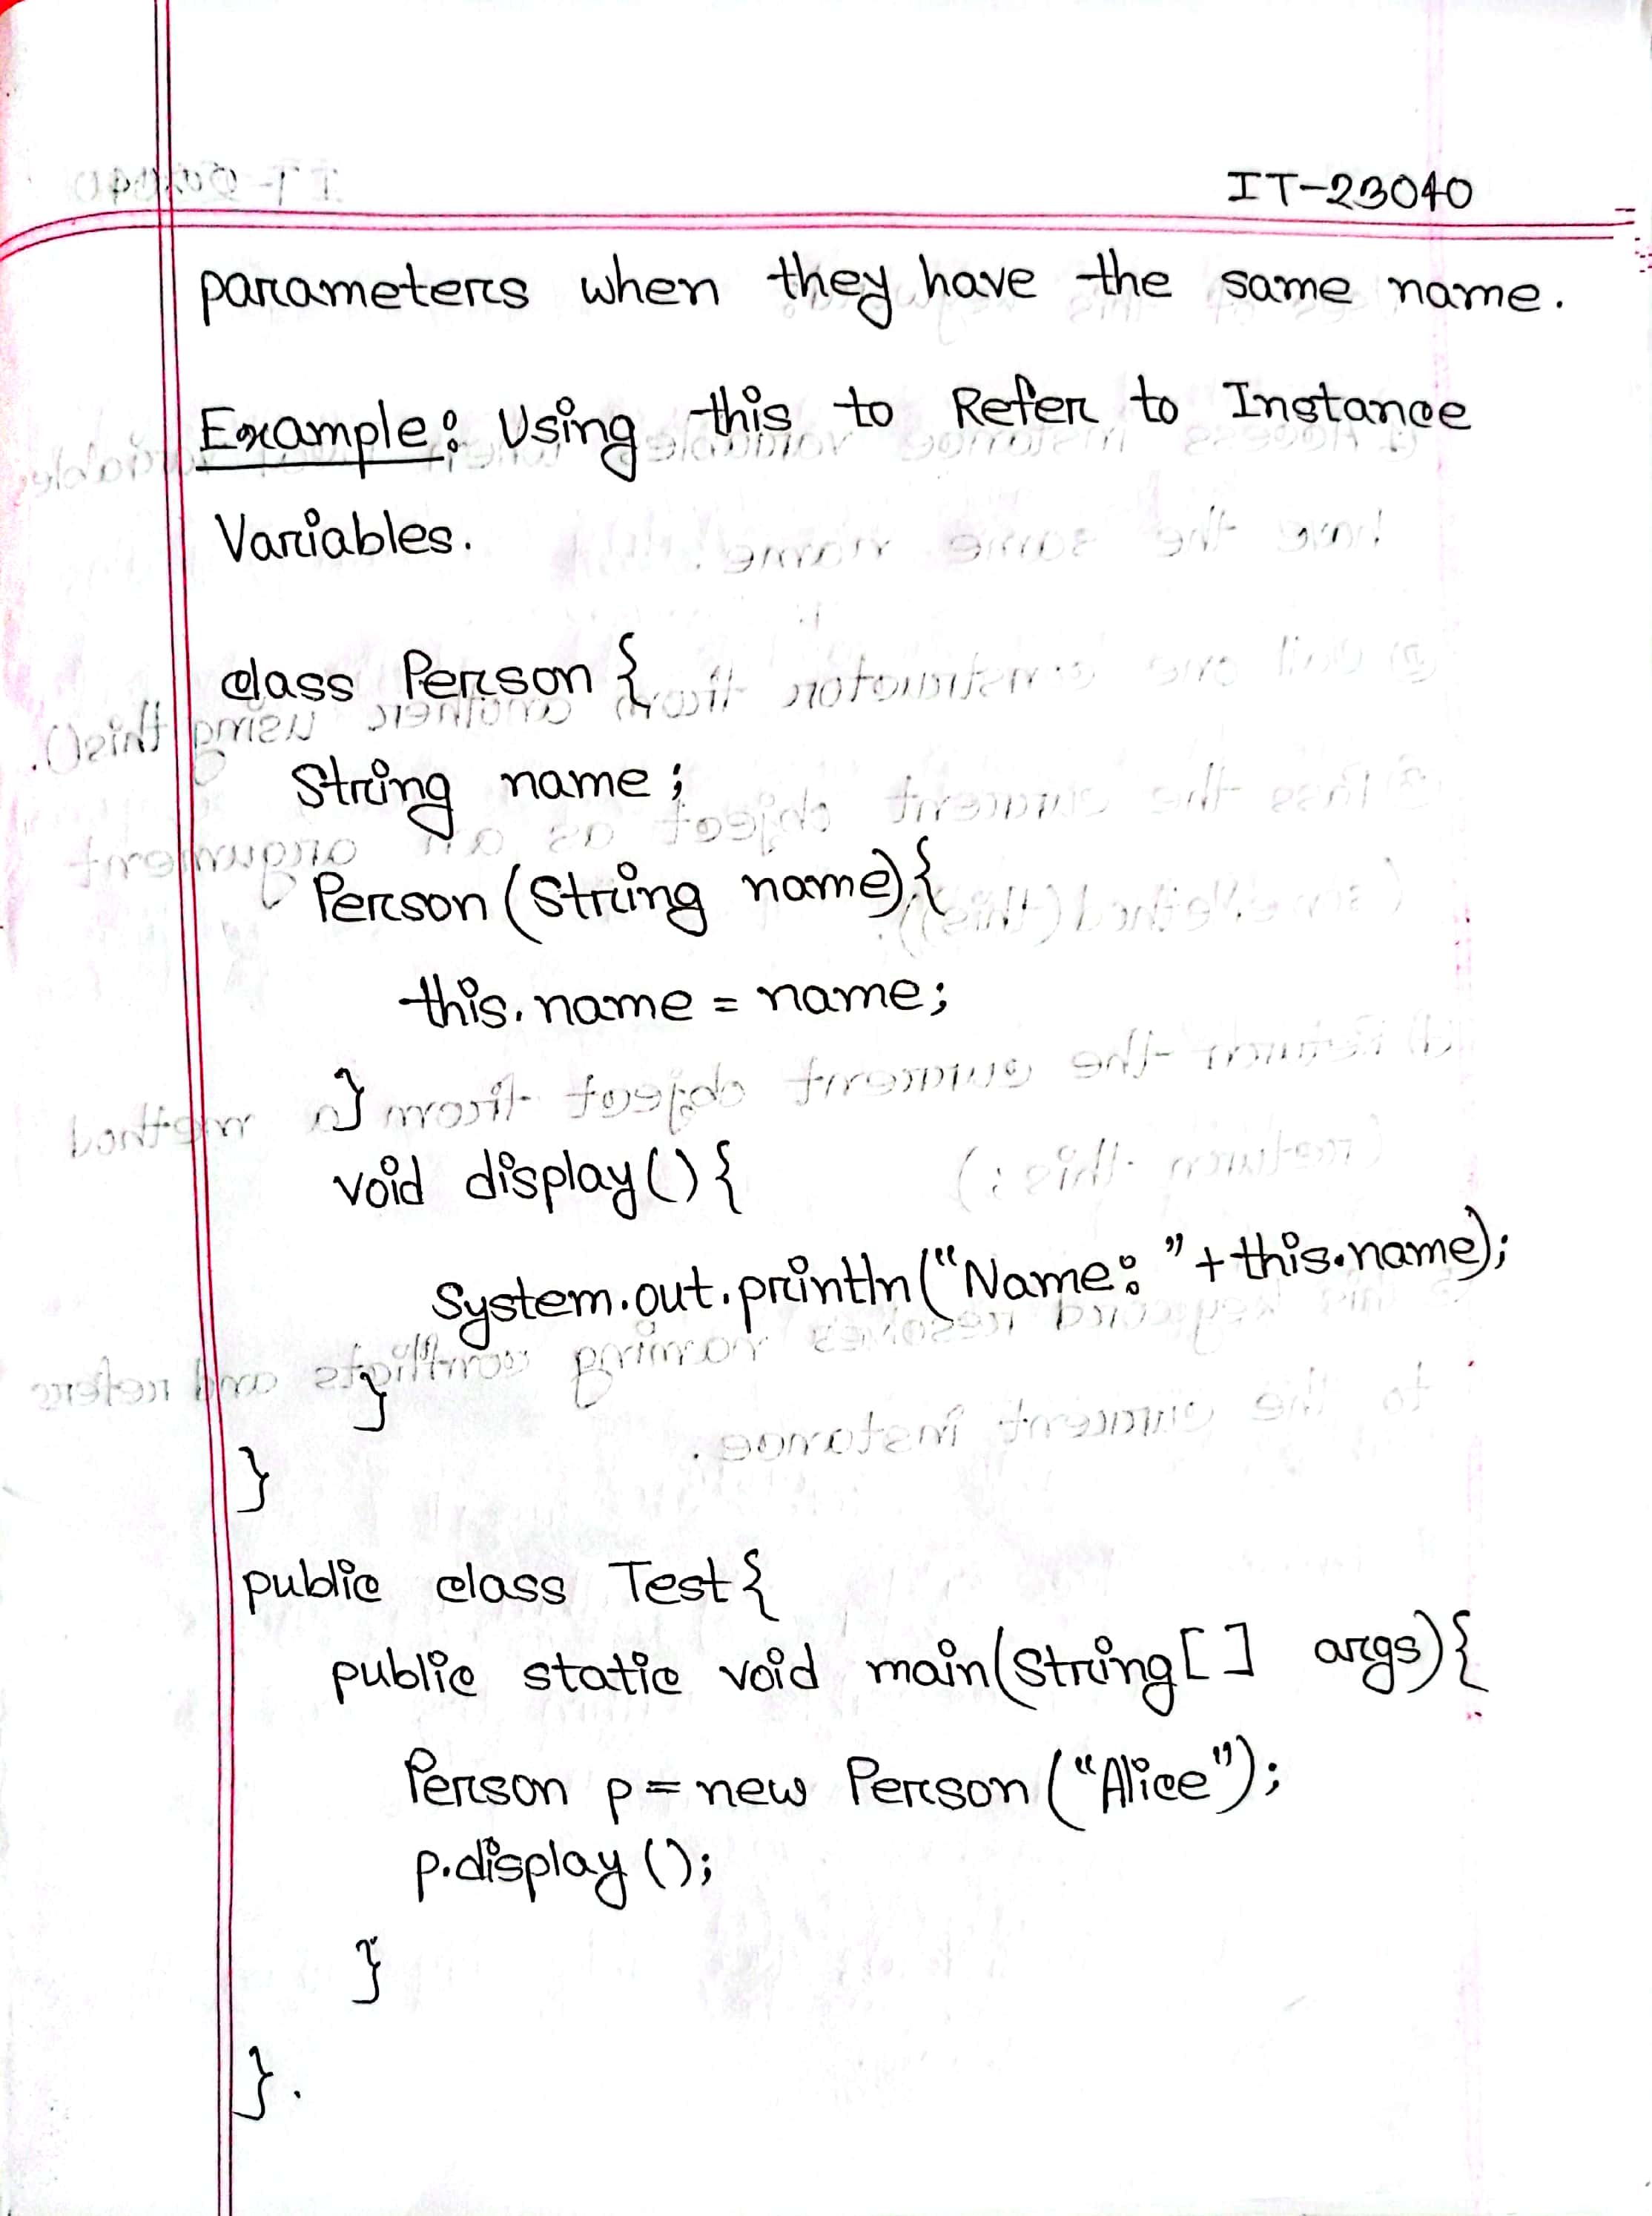 IT-23040
parameters when they have the same name.
Example: Using this to Refer to Instance
Variables.
class Person {
String name;
Person (String name){
this.name = name;
}
void display() {
System.out.println("Name: " + this.name);
}
}
public class Test {
public static void main(String[] args){
Person p = new Person ("Alice");
p.display ();
}
}.